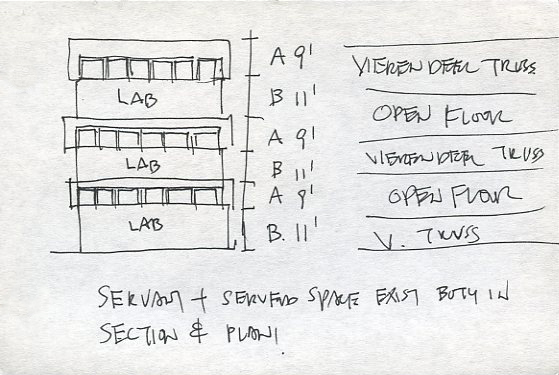 A 9'
VIERENDEEL TRUSS
LAB
B 11'
OPEN FLOOR
A 9'
VIERENDEEL TRUSS
LAB
B 11'
A 9'
OPEN FLOOR
LAB
B. 11'
V. TRUSS
SERVANT + SERVED SPACE EXIST BOTH IN
SECTION & PLAN!